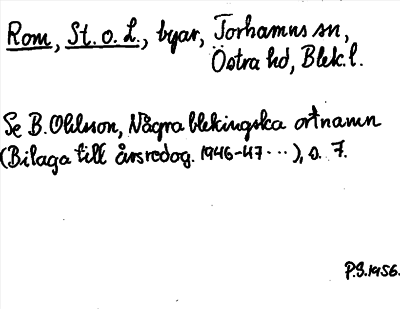 Rom, St. o. L., byar, Torhamns sn,
Östra hd, Blek. l.
Se B. Ohlsson, Några blekingska ortnamn
(Bilaga till årsredog. 1946-47 ...), s. 7.
P.S. 1956.